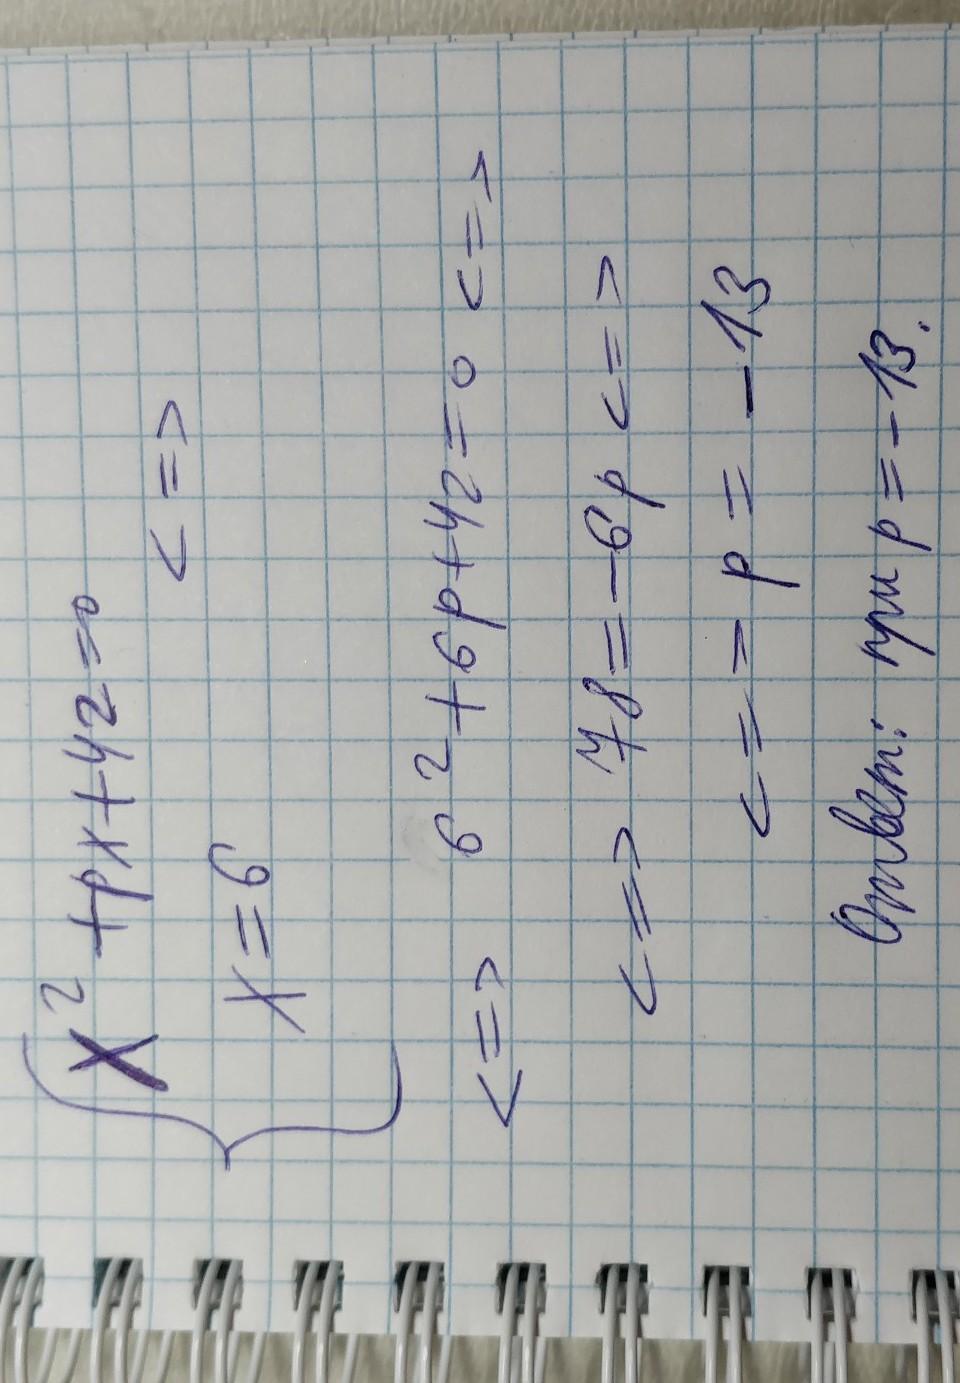 x² + px + 42 = 0
<=>
x = 6
<=> 6² + 6p + 42 = 0 <=>
<=> 78 = -6p <=>
<== p = -13
Ответ: при p = -13.